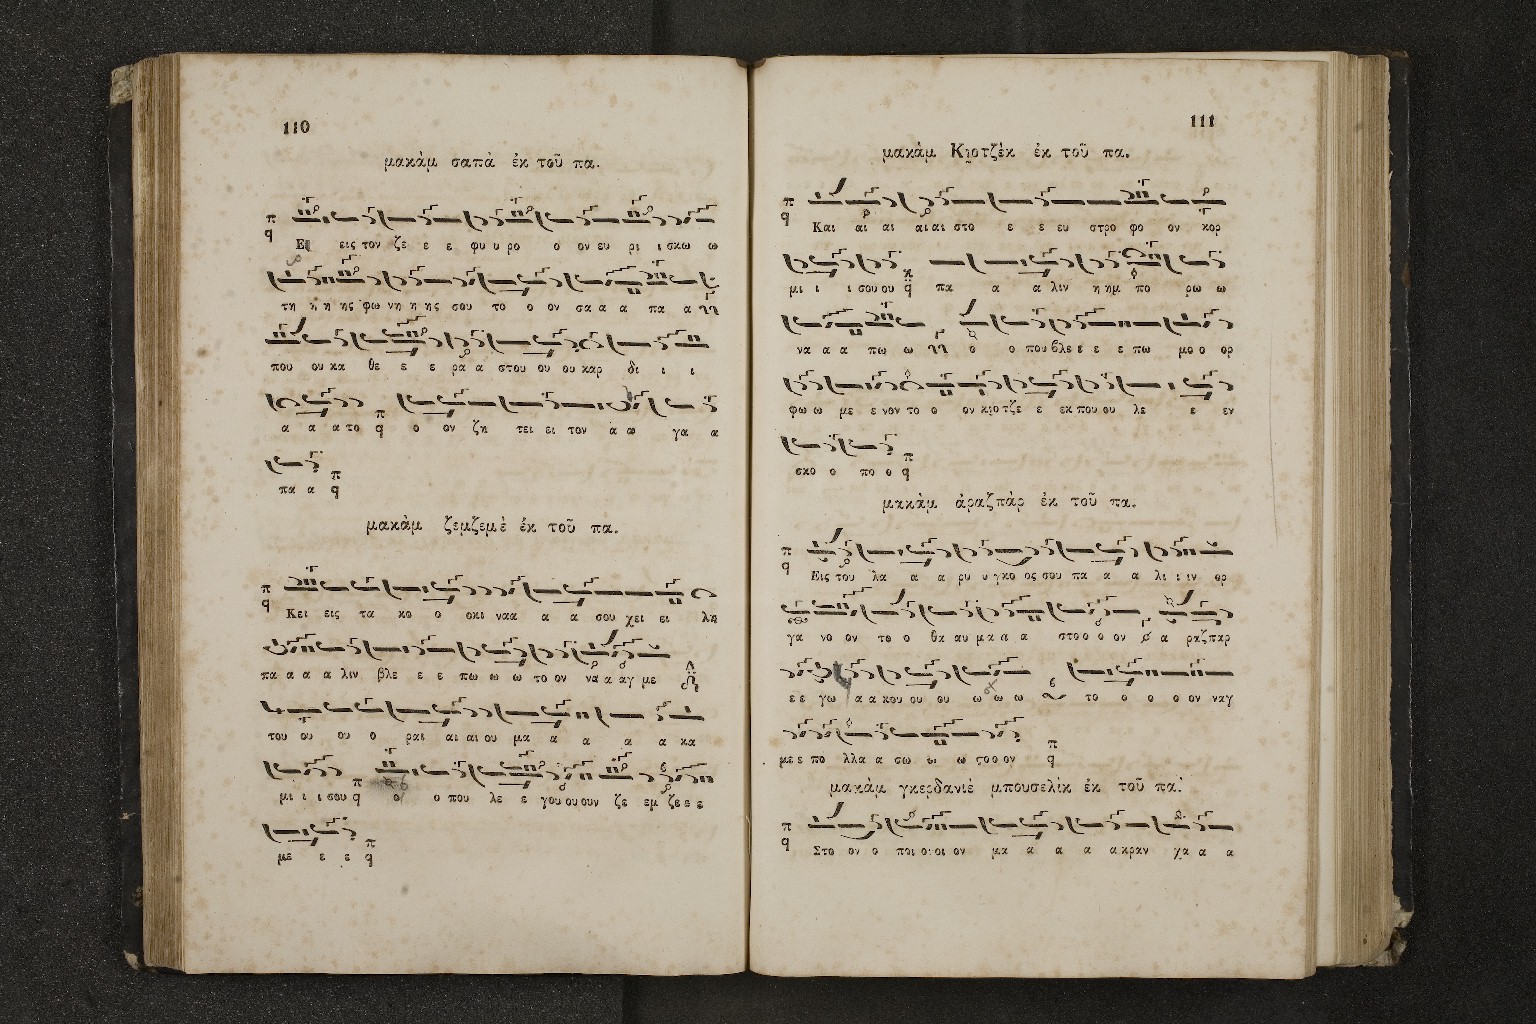 110
μακὰμ σαπὰ ἐκ τοῦ πα.
εις τον ζε ε ε φυ υ ρο ο ον ευ ρι ι σκω ω
τη η η ης φω νη η ης σου το ο ον σα α α πα α
που ου κα θε ε ε ρα α στου ου ου καρ δι ι ι
α α α το ο ον ζη τει ει τον γα α
πα α
μακὰμ ζεμζεμὲ ἐκ τοῦ πα.
Κει εις τα κο ο οκι ναα α α σου χει ει λη
πα α α α λιν βλε ε ε πω ω ω το ον να α αγ με
του ου ου ο ραι αι αι ου μα α α α α κα
μι ι ι σου ο ο που λε ε γου ου ουν ζε εμ ζε ε ε
με ε ε
111
μακὰμ Κιοτζὲκ ἐκ τοῦ πα.
Και αι αι αι αι στο ε ε ευ στρο φο ον κορ
μι ι ι σου ου πα α α λιν η ημ πο ρω ω
να α α πω ω ο ο που βλε ε ε ε πω μο ο ορ
φω ω με ε νον το ο ον κιο τζε ε εκ που ου λε ε εν
σκο ο πο ο
μακὰμ ἀραζπὰρ ἐκ τοῦ πα.
Εις του λα α α ρυ υγκο ος σου πα α α λι ι ιν ορ
γα νο ον το ο θα αυ μα α α στο ο ο ον α ραζπαρ
ε ε γω α α κου ου ου ω ω ω το ο ο ο ον ναγ
με ε πο λλα α σω ω ω το ο ον
μακὰμ γκερδανιὲ μπουσελὶκ ἐκ τοῦ πα.
Στο ον ο ποι οι οι ον μα α α α ακραν χα α α